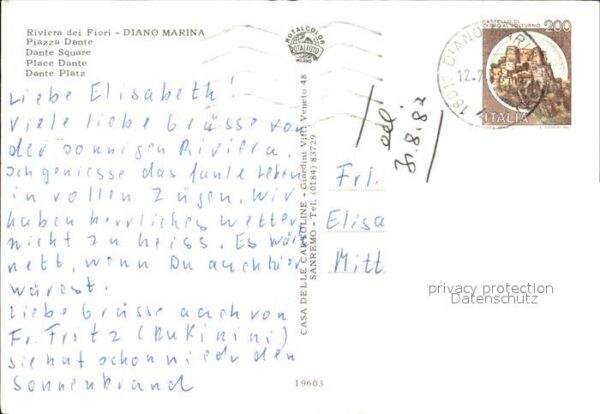 Riviera dei Fiori - DIANO MARINA
Piazza Dante
Dante Square
Place Dante
Dante Platz
Liebe Elisabeth!
Viele liebe Grüsse von
der sonnigen Riviera.
Ich geniesse das faule Leben
in vollen Zügen. Wir
haben herrliches Wetter
nicht zu heiss. Es wär
nett, wenn Du auch hier
wärest.
Liebe Grüsse auch von
Fr. Fritz (Rukinini)
sie hat schon wieder den
Sonnenbrand
ROTALCOLOR
ROTALFOTO
MILANO
CASA DELLE CARTOLINE - Giardini Vitt. Veneto 48
SANREMO - Tel. (0184) 83729
19603
CASTELLO DI
CERRO AL VOLTURNO
200
ITALIA
18013 DIANO
12.7
31.8.82
Frl.
Elisa
Mitt
privacy protection
Datenschutz